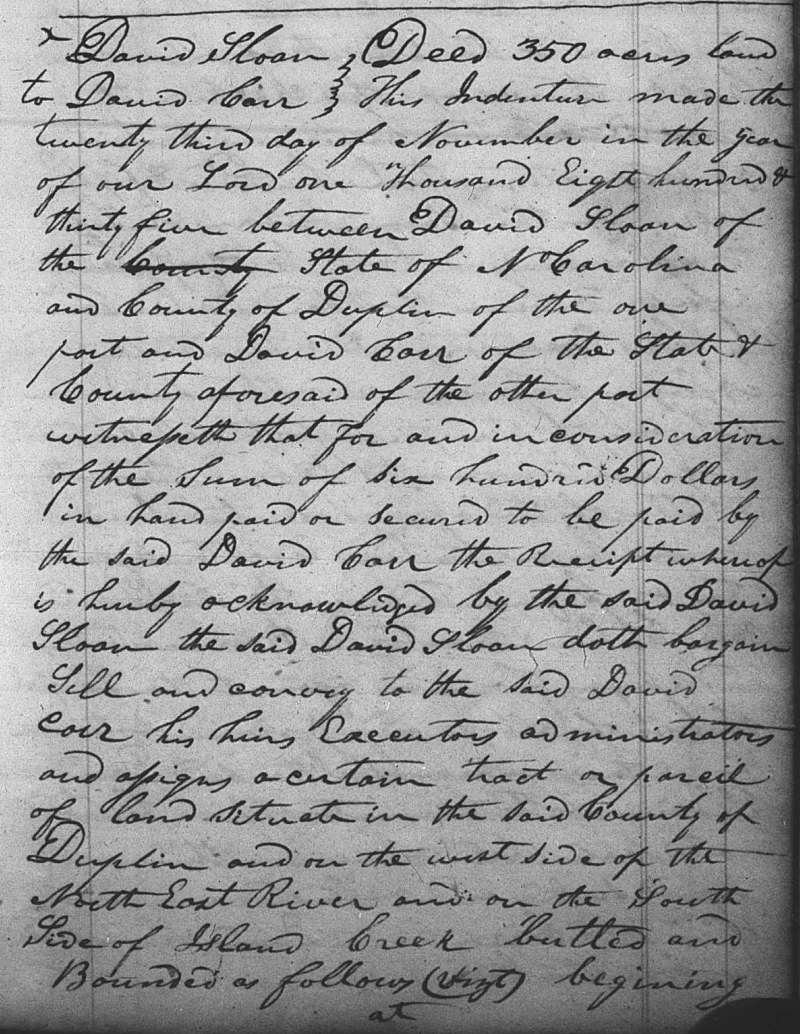 x David Sloan } Deed 350 acres land
to David Carr } This Indenture made the
twenty third day of November in the year
of our Lord one Thousand Eight hundred &
thirty five between David Sloan of
the County State of No Carolina
and County of Duplin of the one
part and David Carr of the State &
County aforesaid of the other part
witnesseth that for and in consideration
of the Sum of six hundred Dollars
in hand paid or secured to be paid by
the said David Carr the Receipt whereof
is hereby acknowledged by the said David
Sloan the said David Sloan doth bargain
Sell and convey to the said David
Carr his heirs Executors administrators
and assigns a certain tract or parcil
of land situate in the said County of
Duplin and on the west side of the
North East River and on the South
Side of Island Creek butted and
Bounded as follows (Vizt) begining
at